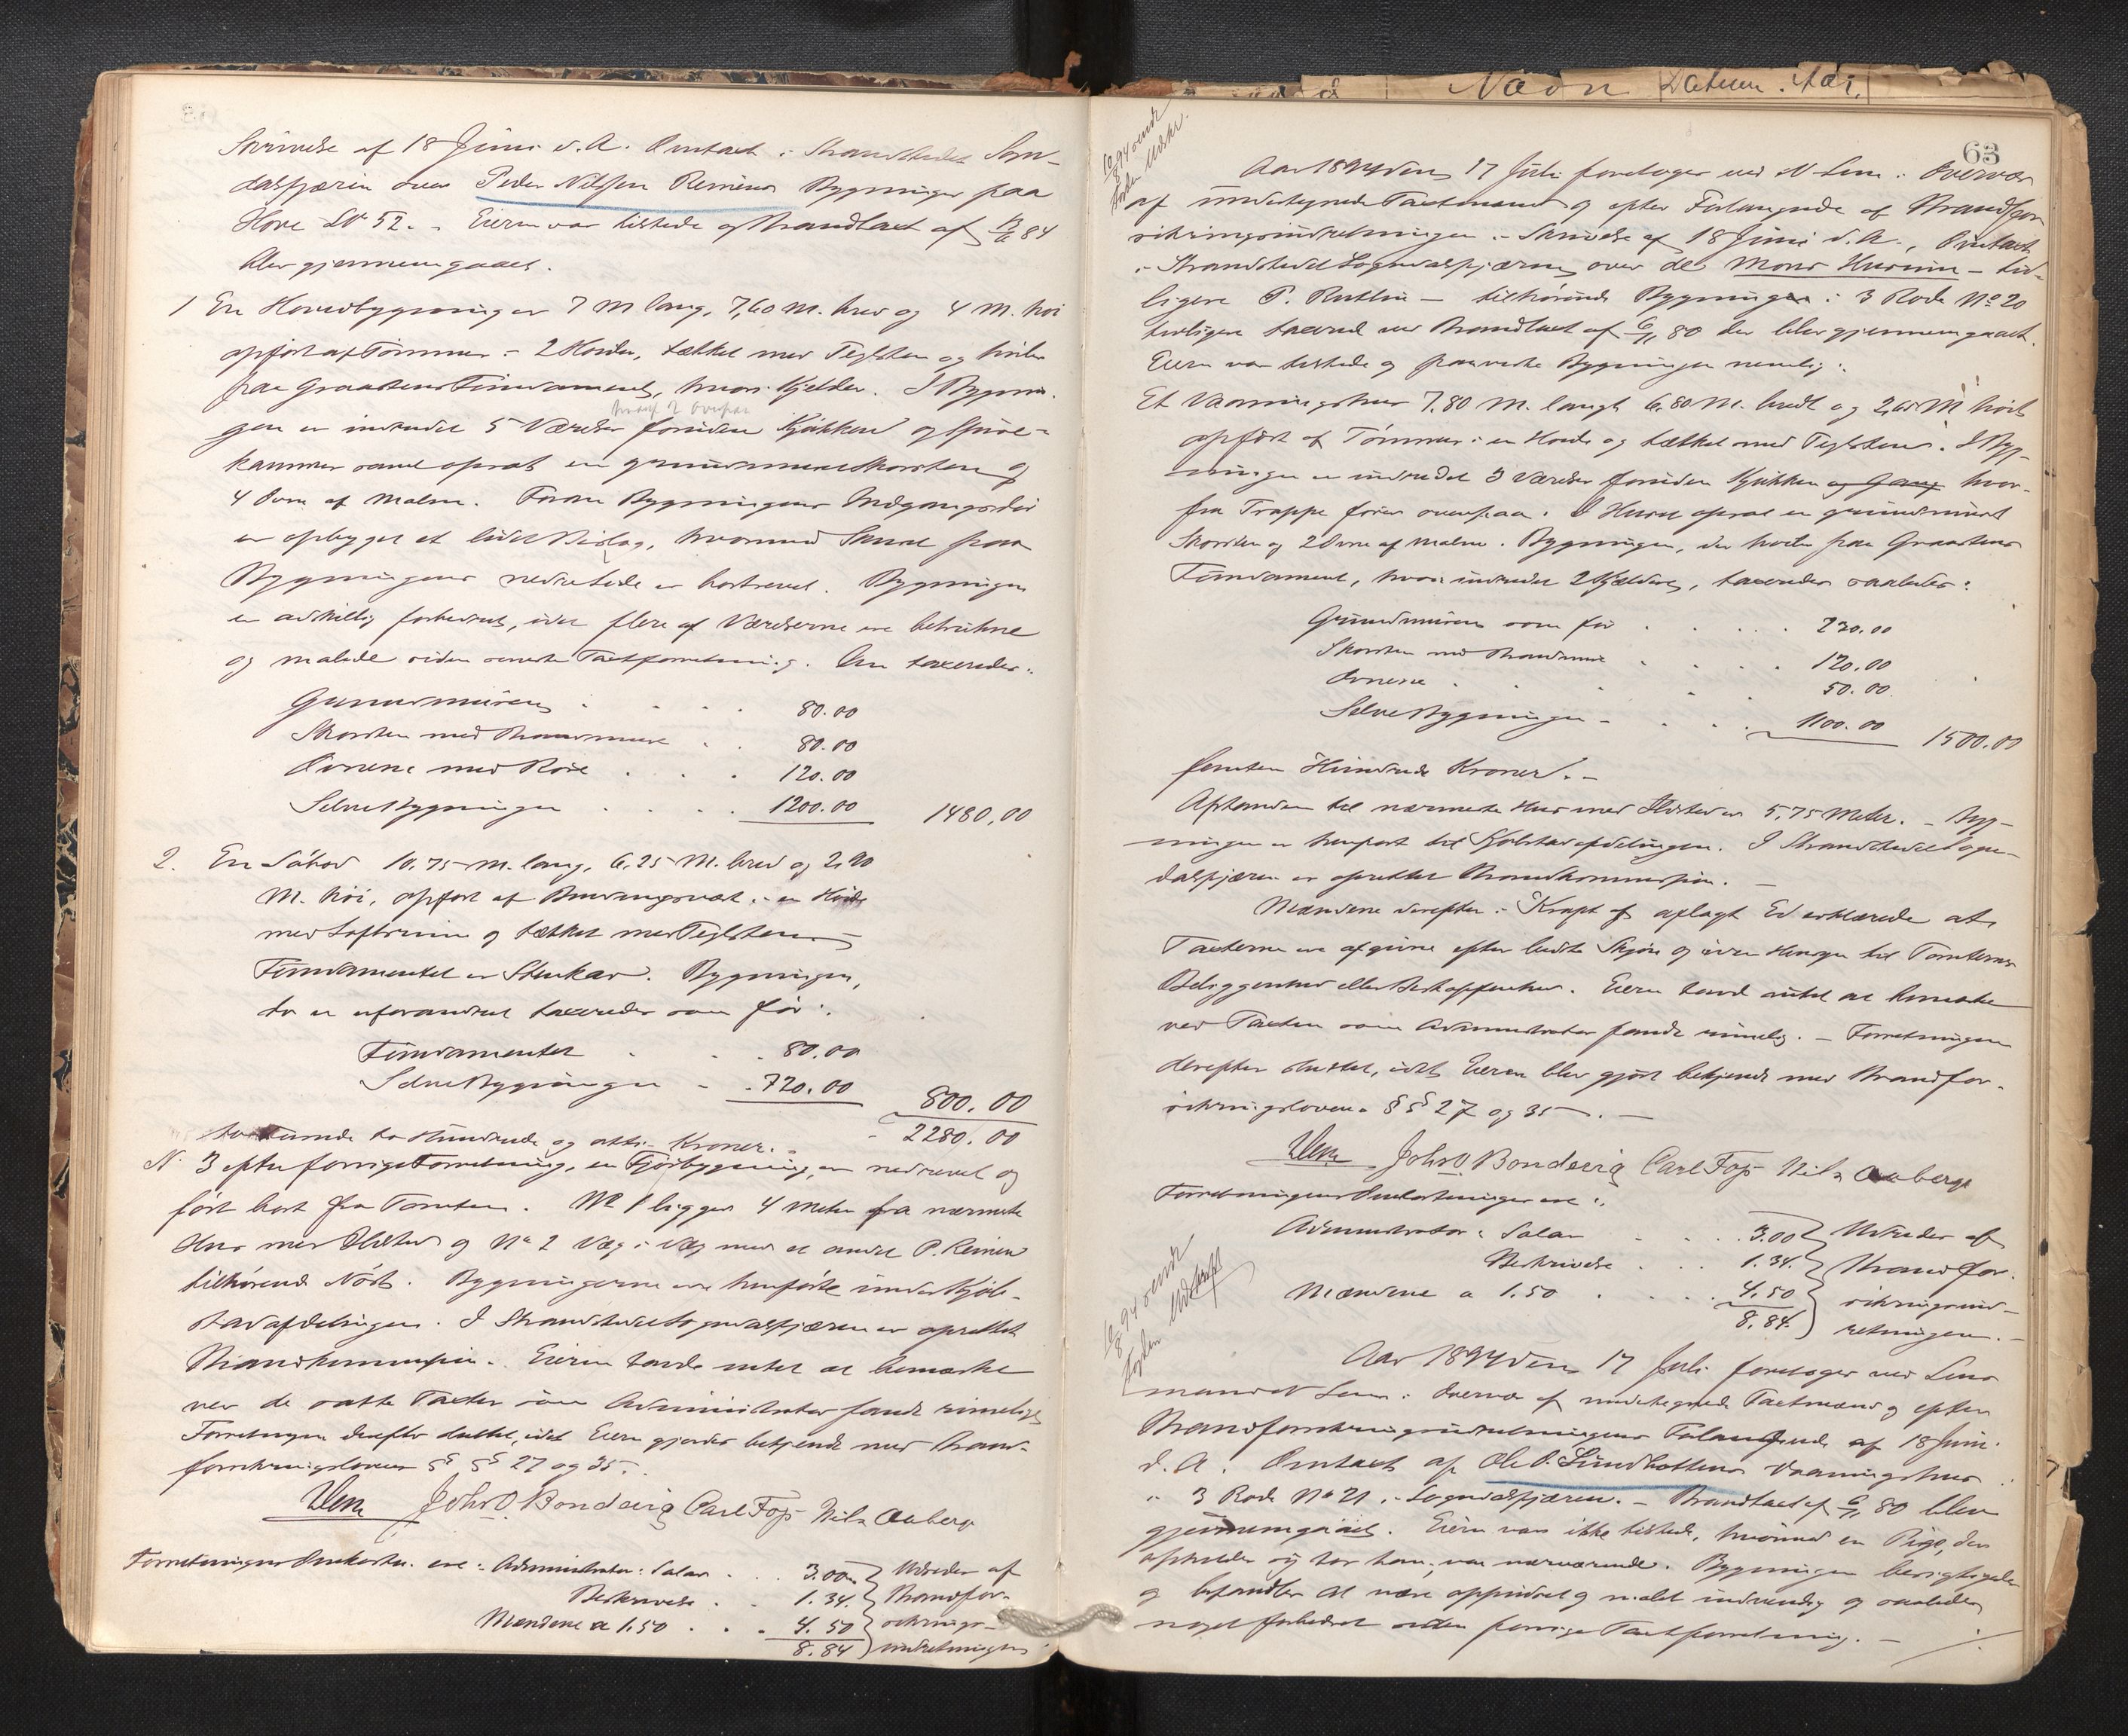 Skrivelse af 18 Juni d. A. Omtaxt i Strandstedet Sogn-
dalsfjæren over Peder Nilssen Reinens Bygninger paa
Hove LN 52. - Eieren var tilstede og Brandtaxt af 84
blev gjennemgaaet.
1 En Hovedbygning er 7 M lang, 7,60 M. bred og 4 M. høi
opført af Tømmer i 2 Høider, tækket med Teglsten og hviler
paa Graastens Fundament, hvori Kjelder. I Bygnin-
gen er indredet 5 Værelser foruden Kjøkken og Spise-
kammer samt opsat en grundmuret Skorsten og
4 Ovne af Malm. Foran Bygningens Indgangsdør
er opbygget et lidet Bislag, hvorimod Skuret paa
Bygningens nedre Side er bortrevet. Bygningen
er adskillig forbedret, idet flere af Værelserne ere betrukne
og malede siden seneste Taxtforretning. Den taxeredes:
Grundmuren . . . . 80.00
Skorsten med Brandmure . . 80.00
Ovnene med Rør . . . 120.00
Selve Bygningen . . . 1200.00 1480.00
2. En Søbod 10.75 M. lang, 6,25 M. bred og 2,90
M. høi, opført af Bindingsværk i en Høide
med Loftsrum og tækket med Teglsten. -
Fundamentet er Stenkar. Bygningen,
da er uforandret taxeredes som før:
Fundamentet . . . 80.00
Selve Bygningen - . 720.00 800.00
to Tusinde to Hundrede og otti Kroner. - - 2280.00
N. 3 efter forrige Forretning, en Fjøsbygning, er nedrevet og
ført bort fra Tomten. No 1 ligger 4 Meter fra nærmeste
Hus med Ildsted og No 2 Væg i Væg med et andet P. Reinen
tilhørende Nøst. Bygningerne ere henførte under Kjøb-
stadafdelingen. I Strandstedet Sogndalsfjæren er oprettet
Brandkommission. Eieren havde intet at bemærke
ved de satte Taxter som Administrator fandt rimelige.
Forretningen derefter sluttet, idet Eieren gjordes bekjendt med Brand-
forsikringslovens §§ 27 og 35.
NLem John O Bondevig Carl Foss Nils Aaberge
Forretningens Omkostn. ere: Administrator: Salær . . 3.00 Udredes af
Beskrivelse . . 1.34. Brandfor-
Mændene a 1.50 . . . 4.50 sikrings-
8.84 indretningen
Navn Datum. Aar.
63
Aar 1894 den 17 Juli foretoges ved N Lem i Overvær
af undertegnede Taxtmænd og efter Forlangende af Brandfor-
sikringsindretningen i Skrivelse af 18 Juni d. A., Omtaxt
i Strandstedet Sogndalsfjæren over de Mons Husum - tid-
ligere P. Rutlin - tilhørende Bygninger i 3 Rode No 20
tidligere taxeret ved Brandtaxt af 6/11 80 der blev gjennemgaaet.
Eieren var tilstede og paaviste Bygningen nemlig:
Et Vaaningshus 7,80 M. langt 6,80 M. bredt og 2,65 M høit
opført af Tømmer i en Høide og tækket med Teglsten. I Byg-
ningen er indredet 3 Værelser foruden Kjøkken og Gang hvor-
fra Trappe fører ovenpaa. I Huset opsat en grundmuret
Skorsten og 2 Ovne af Malm. Bygningen, der hviler paa Graastens
Fundament, hvori indredet 2 Kjældere, taxeredes saaledes:
Grundmuren som før . . . . 230.00
Skorsten med Brandmur . . . . 120.00
Ovnene . . . . . 50.00.
Selve Bygningen - . . . 1100.00 1500.00
femten Hundrede Kroner. -
Afstanden til nærmeste Hus med Ildsted er 5,75 Meter. - Byg-
ningen er henført til Kjøbstadafdelingen. I Strandstedet Sogn-
dalsfjæren er oprettet Brandkommission. -
Mændene derefter i Kraft af aflagt Ed erklærede at
Taxterne ere afgivne efter bedste Skjøn og uden Hensyn til Tomternes
Beliggenhed eller Beskaffenhed. Eieren havde intet at bemærke
ved Taxten som Administrator fandt rimelig. - Forretningen
derefter sluttet, idet Eieren blev gjort bekjendt med Brandfor-
sikringslovens §§ 27 og 35. -
NLem John O Bondevig Carl Foss Nils Aaberge
Forretningens Omkostninger ere:
Administrator: Salær . . 3.00 Udredes af
Beskrivelse . . . 1.34. Brandfor-
Mændene a 1.50 . . . . 4.50 sikringsind-
8.84. retningen. -
Aar 1894 den 17 Juli foretoges ved Lens-
mand N Lem i Overvær af undertegnede Taxtmænd og efter
Brandforsikringsindretningens Forlangende af 18 Juni
d. A. Omtaxt af Ole O. Sundbottens Vaaningshus
i 3 Rode No 21 i Sogndalsfjæren. - Brandtaxt af 6/11 80 blev
gjennemgaaet. Eieren var ikke tilstede, hvorimod en Pige, der
opholder sig hos ham, var nærværende. Bygningen besigtigedes
og befandtes at være oppudset og malet indvendig og saaledes
noget forbedret siden forrige Taxtforretning. -